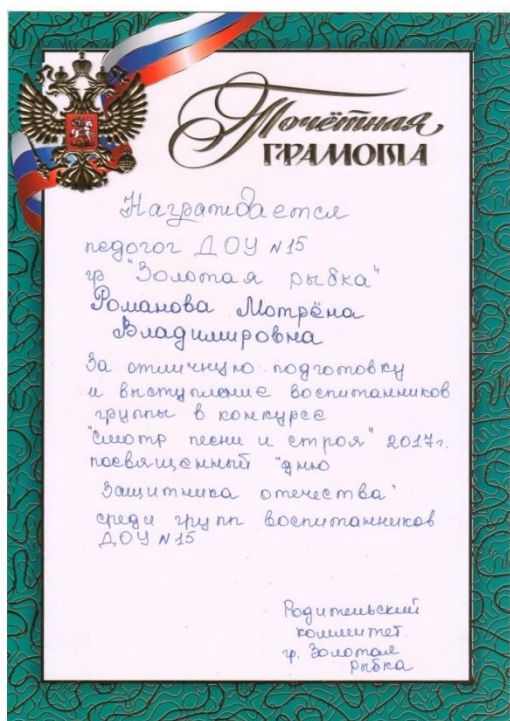 Почётная
ГРАМОТА
Награждается
педогог ДОУ №15
гр "Золотая рыбка"
Романова Мотрёна
Владимировна
За отличную подготовку
и выступление воспитанников
группы в конкурсе
"Смотр песни и строя" 2017г.
посвященный "дню
Защитника отечества"
среди групп воспитанников
ДОУ №15
Родительский
коммитет
гр. Золотая
рыбка